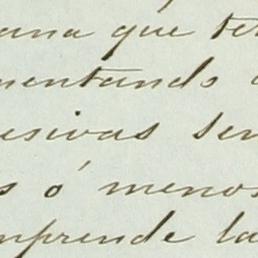 ana que ten
mentando
esivas sen
s ó menos
mprende la